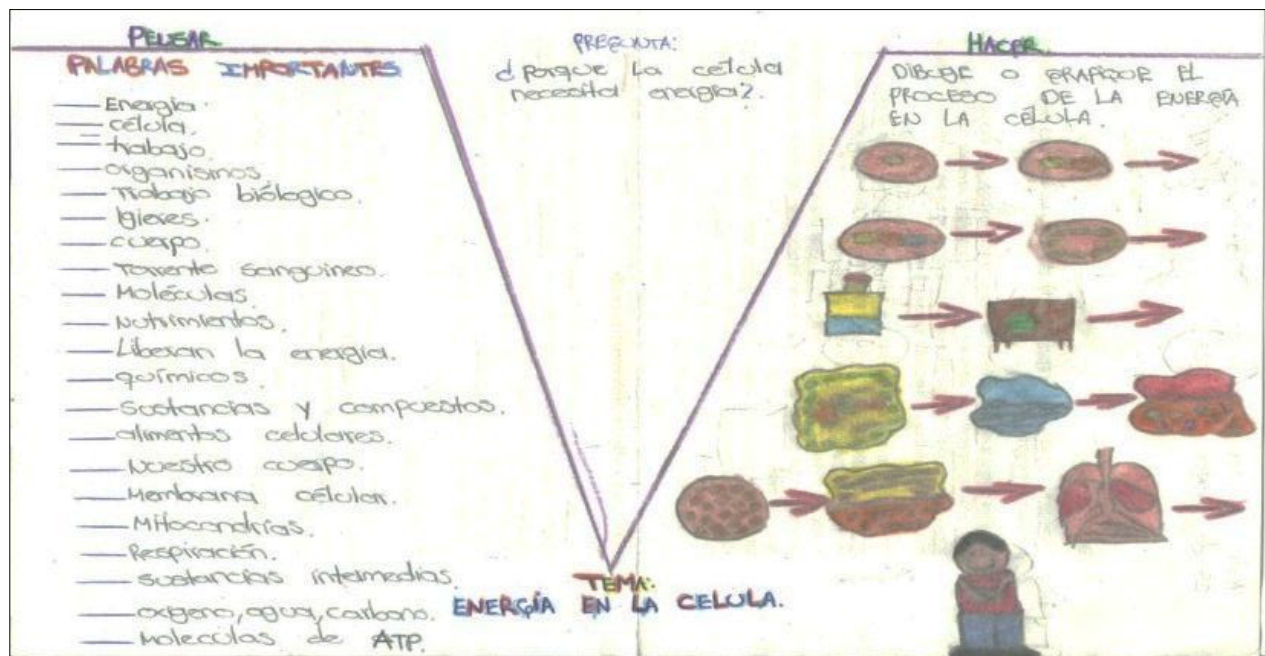 PENSAR
PALABRAS IMPORTANTES
Energía.
célula.
trabajo.
organismos
Trabajo biólogico.
Igieres.
cuerpo.
Torrente sanguineo.
Moléculas.
Nutrimientos.
Liberan la energía.
químicos.
Sustancias y compuestos.
alimentos celulares.
Nuestro cuerpo.
Membrana célular.
Mitocondrias.
Respiración.
sustancias intermedias.
oxigeno, agua, carbono.
Moleculas de ATP.
PREGUNTA:
¿Porque la celula
necesita energía?.
TEMA:
ENERGÍA EN LA CELULA.
HACER
DIBUJE O GRAFIQUE EL
PROCESO DE LA ENERGÍA
EN LA CÉLULA.